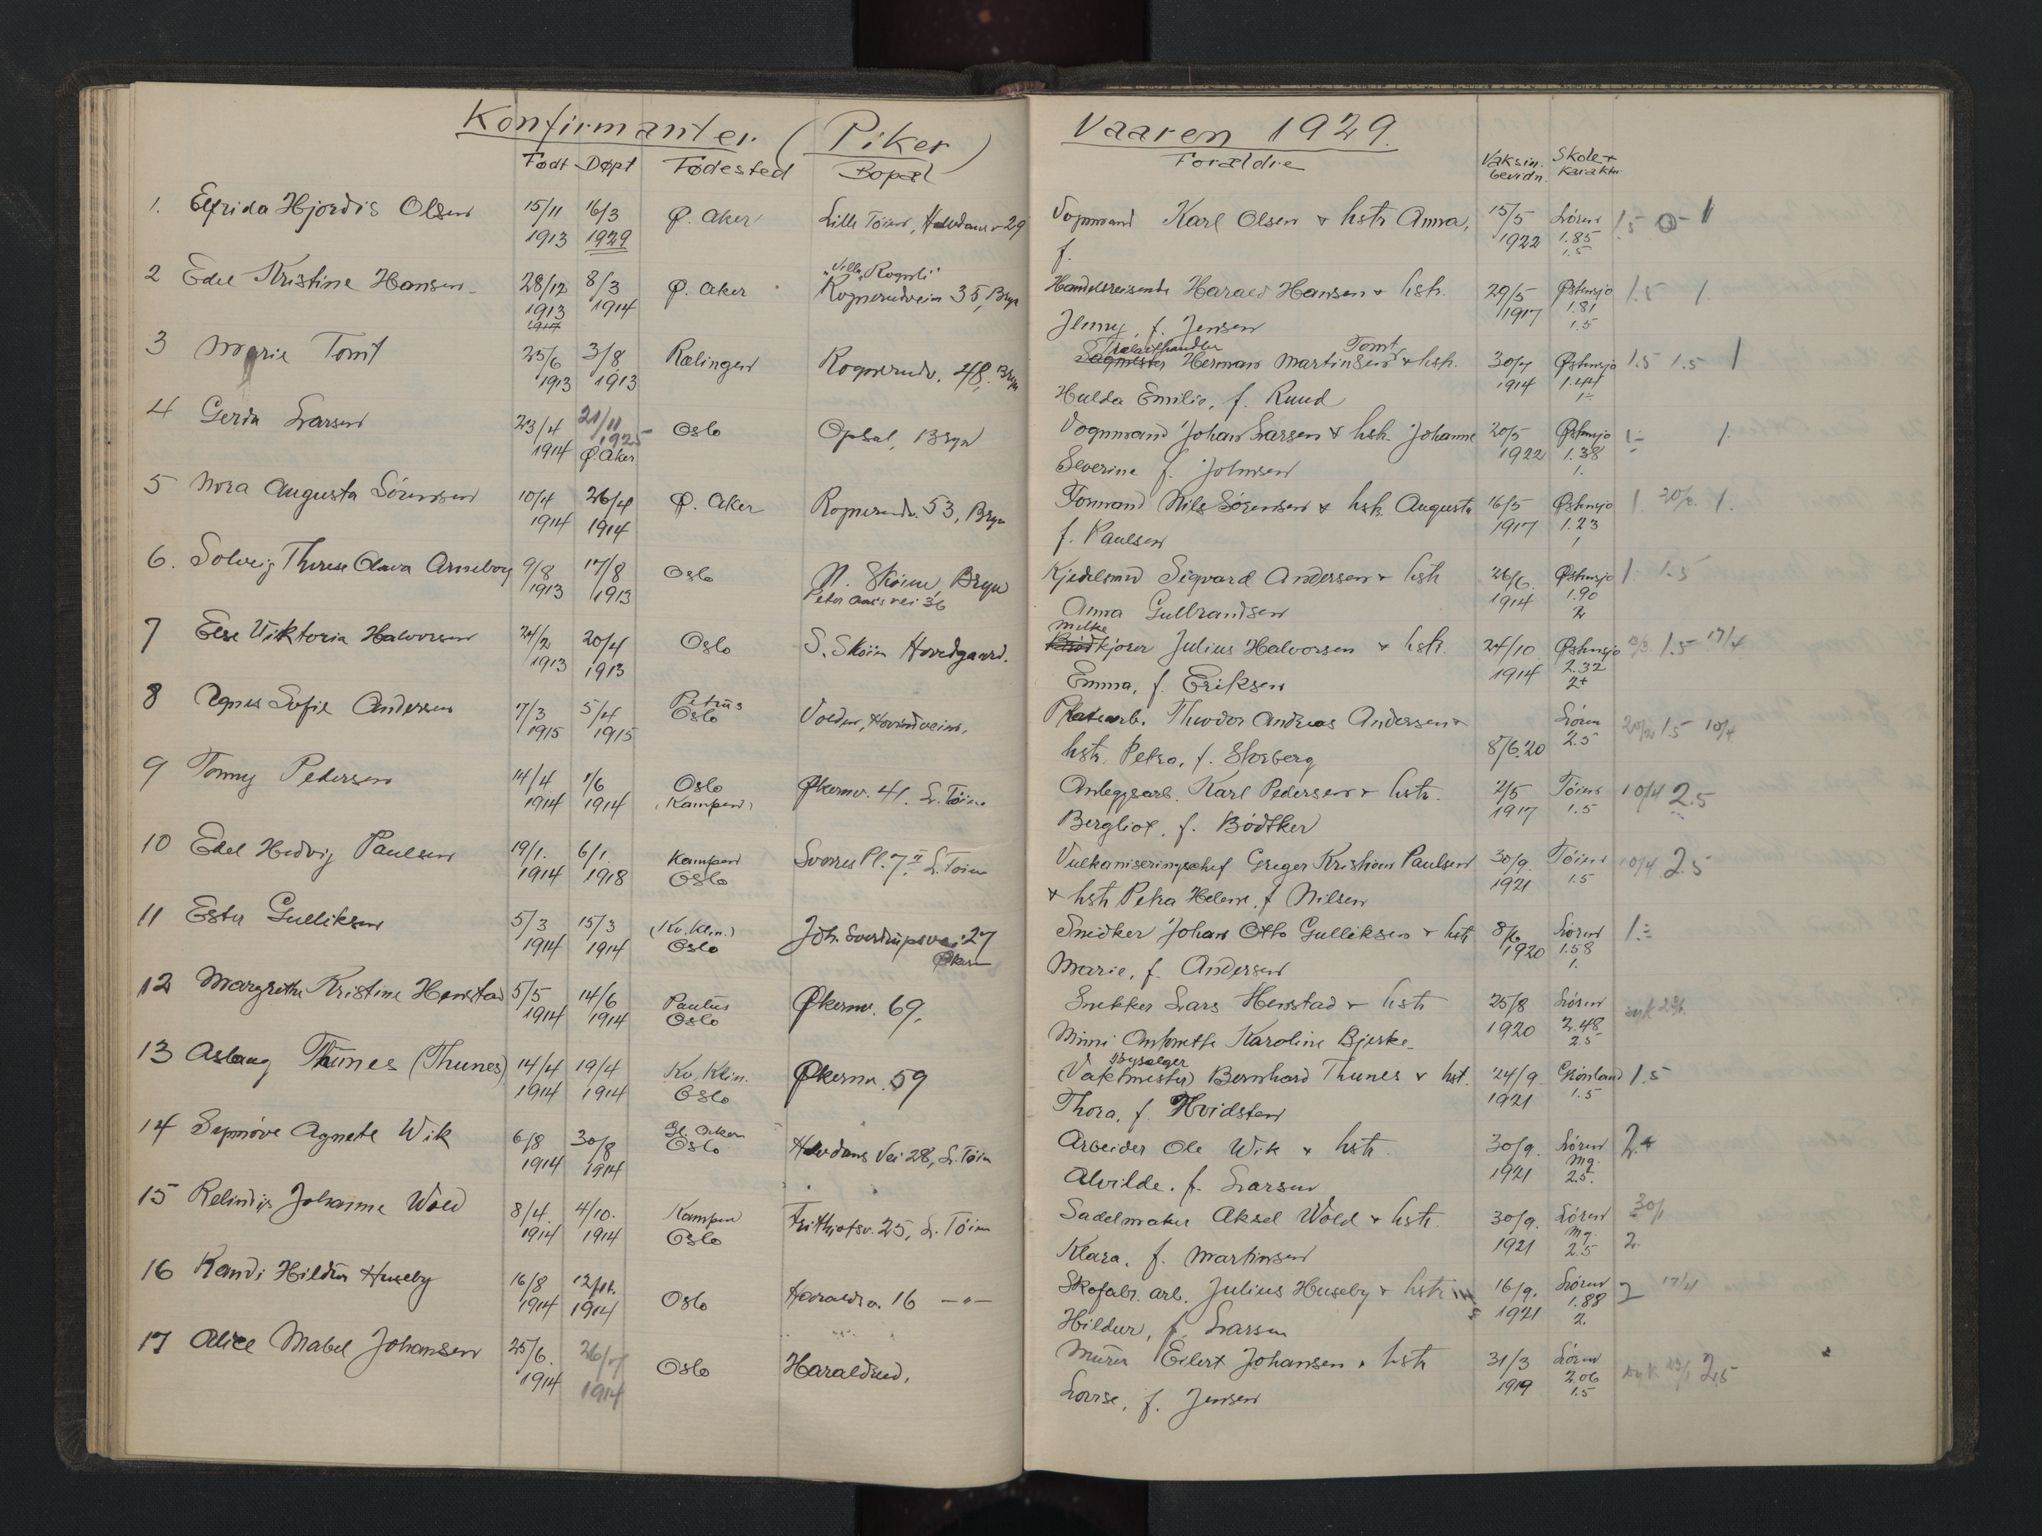 Konfirmanter (Piker) Vaaren 1929.
Født Døpt Fødested Bopæl Forældre Vaksin. bevidn. Skole + karakter
1. Elfrida Hjordis Olsen 15/11 1913 16/3 1929 Ø. Aker Lille Tøien, Halvdans v. 29 Vognmand Karl Olsen & hstr. Anna, 15/5 1922 Lören 1.85 1.5 1.5 1
f.
2 Edel Kristine Hansen 28/12 1913 8/3 1914 Ø. Aker "Villa Rognli" Rognerudveien 35, Bryn Handelsreisende Harald Hansen & hstr. 29/5 1917 Østensjø 1.81 1.5 1.5 1
Jenny, f. Jensen
3 Marie Tomt 25/6 1913 3/8 1913 Rælingen Rognerudv. 48, Bryn Trælasthandler Herman Martinsen Tomt & hstr. 30/7 1914 Østensjø 1.44 1÷ 1.5 1.5 1
Hulda Emilie, f. Ruud
4 Gerda Larsen 23/4 1914 21/11 1925 Ø. Aker Oslo Opsal, Bryn Vognmand Johan Larsen & hstr. Johanne 20/5 1922 Østensjø 1.38 1. 1÷ 1.
Severine f. Johnsen
5 Nora Augusta Sörensen 10/4 1914 26/4 1914 Ø. Aker Rognerudv. 53, Bryn Formand Nils Sørensen & hstr. Augusta 16/5 1917 Østensjø 1.23 1 1 1.
f. Paulsen
6. Solveig Therese Olava Arneborg 9/8 1913 17/8 1913 Oslo N. Skøien, Bryn Kjedelsmed Sigvard Andersen & hstr. 26/6 1914 Østensjø 1.90 2 1. 1.5
Anna Gulbrandsen
7 Else Viktoria Halvorsen 24/2 1913 20/4 1913 Oslo S. Skøien Hovedgaard. Melkekjører Julius Halvorsen & hstr. 24/10 1914 Østensjø 2.32 2+ 1.5 17/4
Emma, f. Eriksen
8 Agnes Sofie Andersen 7/3 1915 5/4 1915 Petrus Oslo Volden, Hovindveien. Theodor Andreas Andersen & Lören 2.5 1.5 10/4
hstr. Petra, f. Storberg 8/6.20
9 Tonny Pedersen 14/4 1914 1/6 1914 Oslo (Kampen) Økernv. 41. L. Tøien Anlegsarb. Karl Pedersen & hstr. 2/5 1917 Töien 1.5 10/4 2.5
Bergliot, f. Bödtker
10 Edel Hedvig Paulsen 19/1. 1914 6/1. 1918 Kampen Oslo Sverres Pl. 7, II L. Tøien Vulkaniseringschef Greger Kristian Paulsen 30/9. 1921 Töien 1.5 10/4 2.5
& hstr. Petra Helene, f. Nilsen
11 Ester Gulliksen 5/3 1914 15/3 1914 (Kv. Klin.) Oslo Joh. Sverdrupsvei 27 Økern Snedker Johan Otto Gulliksen & hstr. 8/6 1920 Lören 1.58 1. 1÷
Marie, f. Andersen
12 Margrethe Kristine Henstad 5/5 1914 14/6 1914 Paulus Oslo Økernv. 69, Snekker Lars Henstad & hstr. 25/8 1920 Lören 2.48 2.5
Minni Antonette Karoline Bjerke
13 Aslaug Thunes (Thunes) 14/4 1914 19/4 1914 Kv. Klin. Oslo Økernv. 59 (Vaktmester) Bernhard Thunes & hst. 24/9. 1921 Grønland 1.5 1.5
Thora, f. Hvidsten
14 Synnøve Agnete Wik 6/8 1914 30/8 1914 Gl. Aker Oslo Halvdans Vei 28, L. Tøien Arbeider Ole Wik & hstr. 30/9. 1921 Lören Mg. 2.5. 2+
Alvilde, f. Larsen
15 Johanne Wold 8/4. 1914 4/10. 1914 Kampen Oslo Frithjofsv. 25, L. Tøien Sadelmaker Aksel Wold & hstr. 30/9. 1921 Lören Mg. 2.5 2.
Klara, f. Martinsen
16 Randi Hildur Huseby 16/8 1914 12/11. 1914 Oslo Haraldsv. 16 —"— Skofabr. arb. Julius Huseby & hstr. 16/9. 1921 Lören 1.88 2. 2 17/4
Hildur, f. Larsen
17 Alice Mabel Johansen 25/6. 1914 26/7 1914 Oslo Haraldrud, Murer Eilert Johansen & hstr. 31/3 1919 Lören 2.06 1.5 2.5
Lovise, f. Jensen